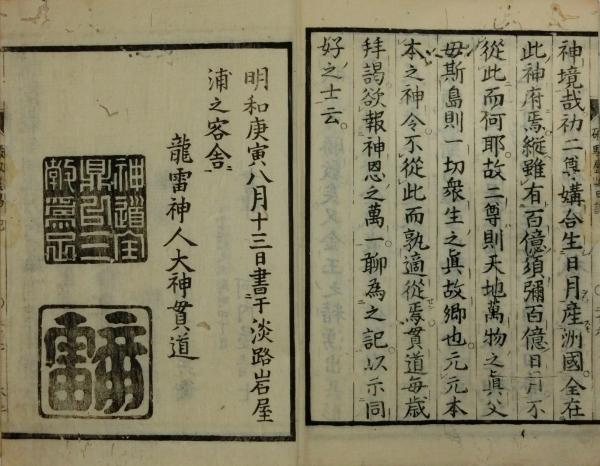 神境哉初二尊媾合生日月産洲國全在
此神府焉縱雖有百億須彌百億日月不
從此而何耶故二尊則天地萬物之眞父
母斯島則一切衆生之眞故鄉也元元本
本之神令不從此而孰適從焉貫道每歳
拜謁欲報神恩之萬一聊為之記以示同
好之士云
明和庚寅八月十三日書于淡路岩屋
浦之客舎
龍雷神人大神貫道